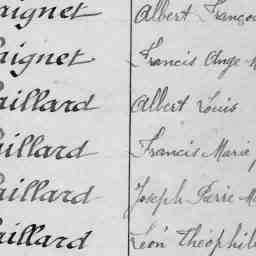 aignet Albert Franço
aignet Francis Ange M
aillard Albert Louis
aillard Francis Marie
aillard Joseph Pierre Ma
aillard Léon Théophile